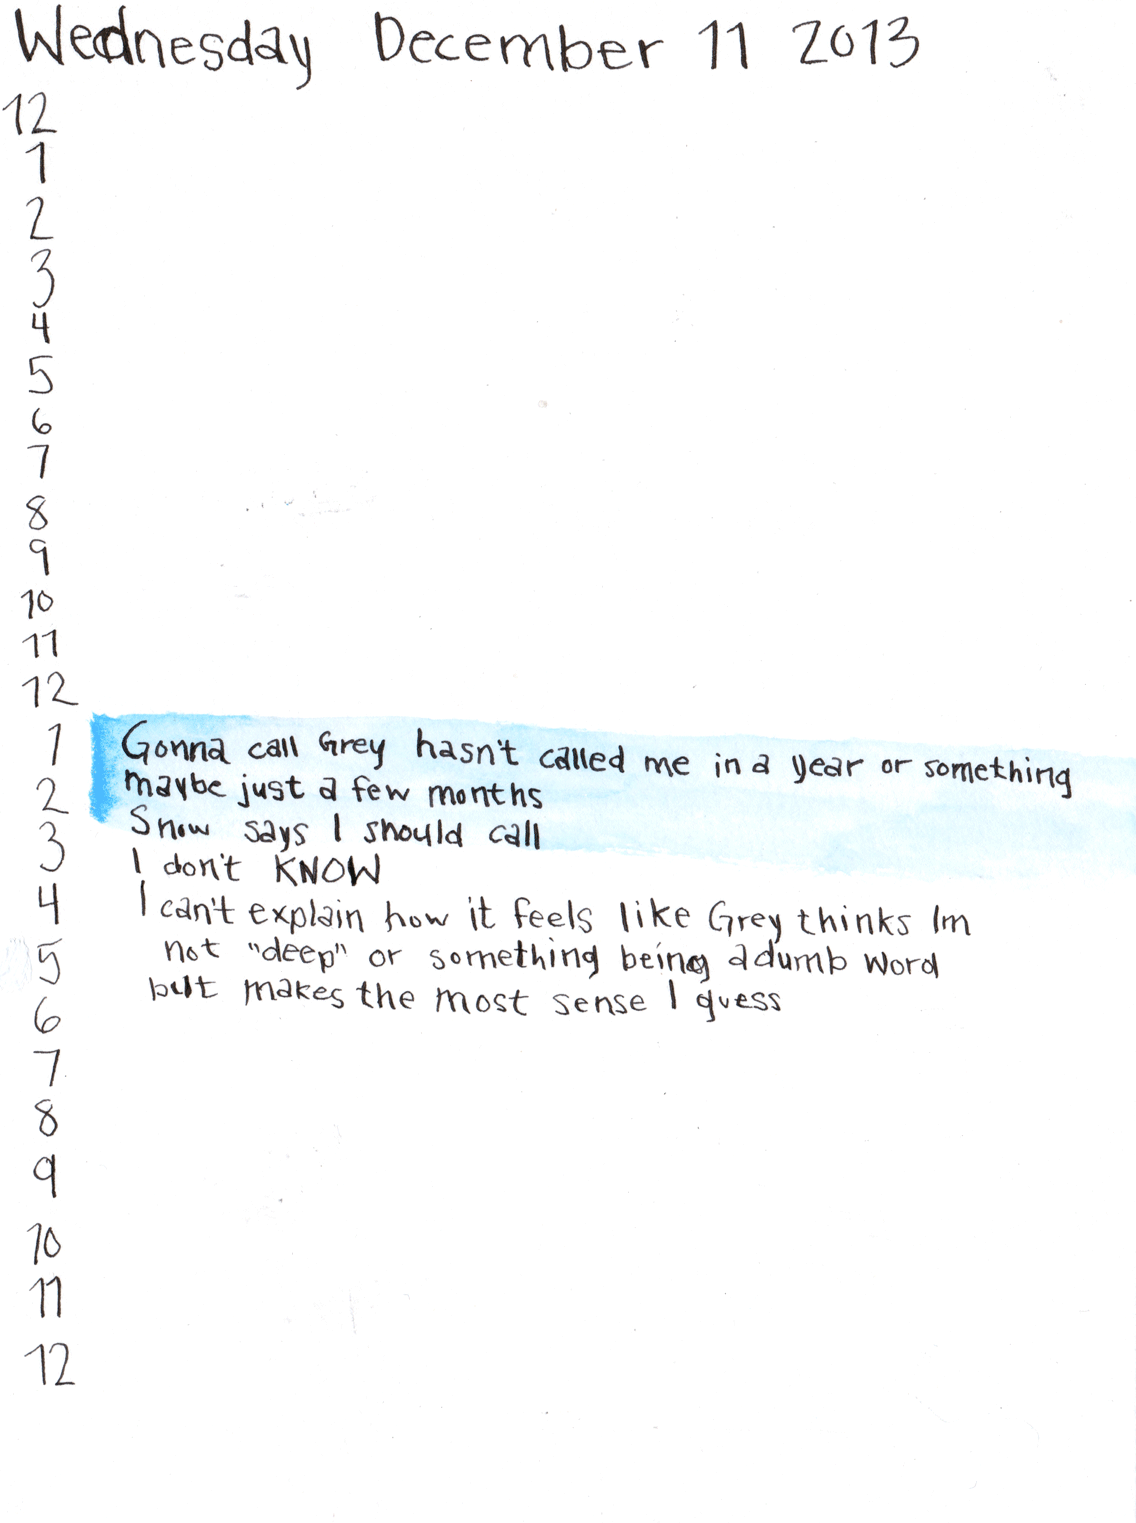 Wednesday December 11 2013
12
1
2
3
4
5
6
7
8
9
10
11
12
1 Gonna call Grey hasn't called me in a year or something
2 maybe just a few months
3 Snow says I should call
I don't KNOW
4 I can't explain how it feels like Grey thinks Im
5 not "deep" or something being a dumb word
6 but makes the most sense I guess
7
8
9
10
11
12